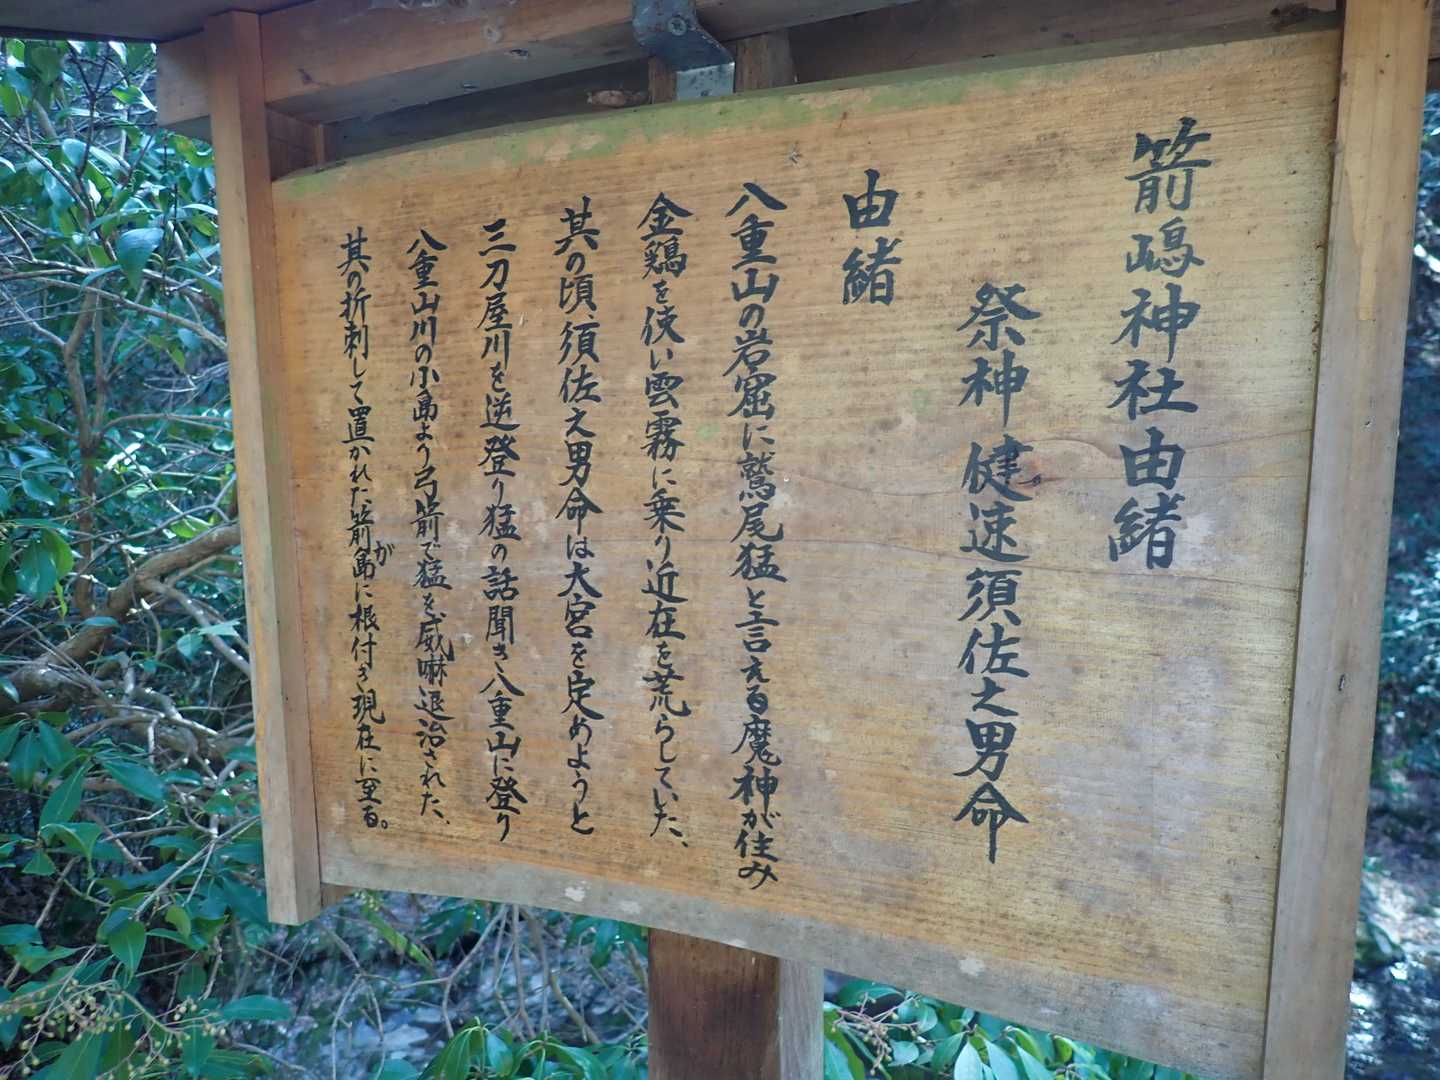 箭嶋神社由緒
祭神 健速須佐之男命
由緒
八重山の岩窟に鷲尾猛と言える魔神が住み
金鶏を使い雲霧に乗り近在を荒らしていた、
其の頃、須佐之男命は大宮を定めようと
三刀屋川を逆登り猛の話聞き、八重山に登り
八重山川の小島より弓箭で猛を威嚇退治された、
其の折刺して置かれた箭が島に根付き現在に至る。